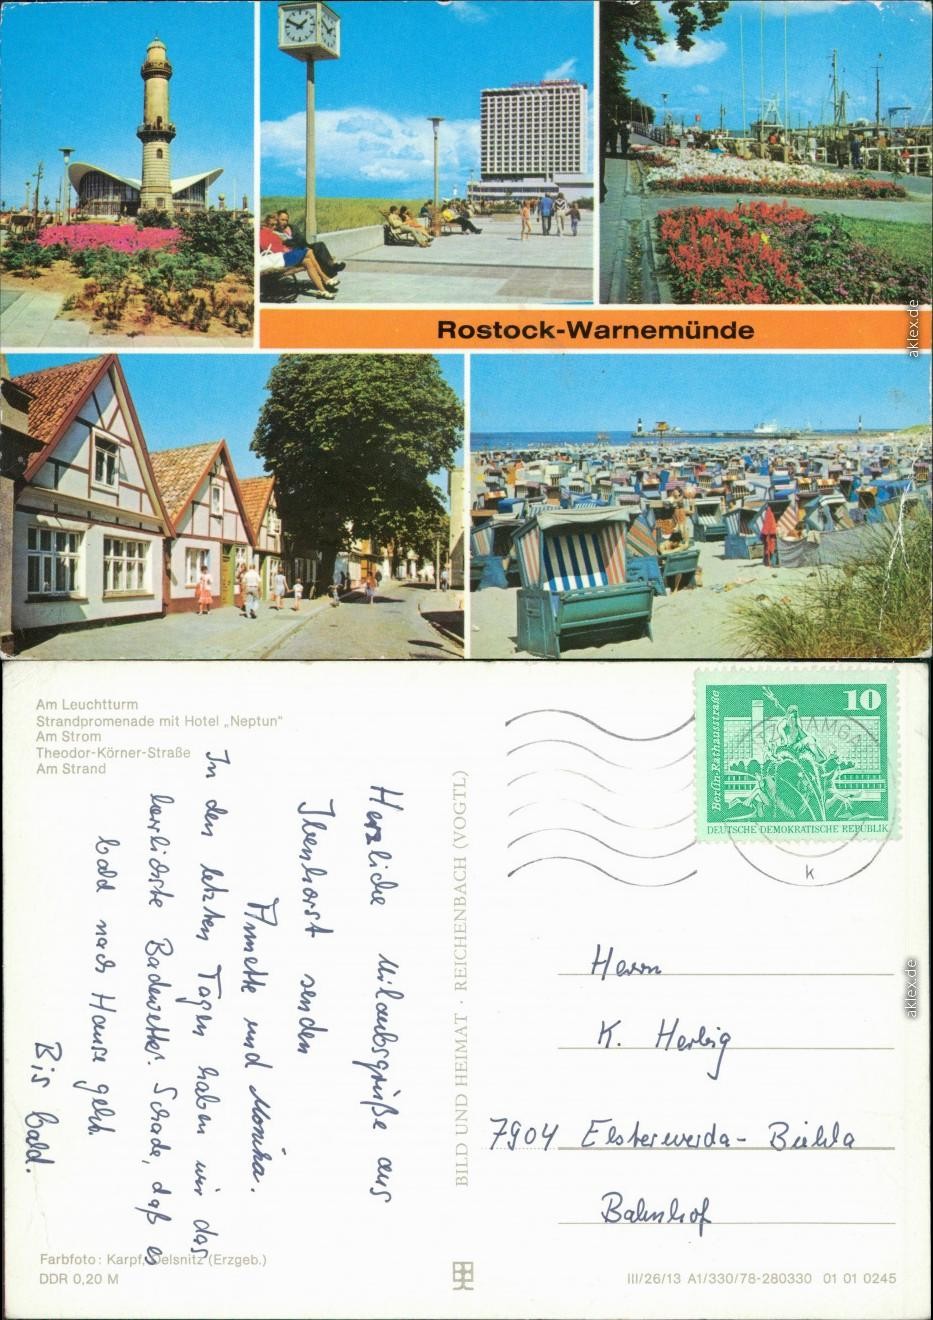 Rostock-Warnemünde
aklex.de
Am Leuchtturm
Strandpromenade mit Hotel „Neptun“
Am Strom
Theodor-Körner-Straße
Am Strand
Herzliche Urlaubsgrüße aus
Ibenhorst senden
Annette und Monika.
In den letzten Tagen haben wir das
herrlichste Badewetter. Schade, daß es
bald nach Hause geht.
Bis bald.
BILD UND HEIMAT · REICHENBACH (VOGTL)
10
Berlin-Rathausstraße
DEUTSCHE DEMOKRATISCHE REPUBLIK
k
Herrn
K. Herbig
7904 Elsterwerda-Biehla
Bahnhof
aklex.de
Farbfoto: Karpf, Oelsnitz (Erzgeb.)
DDR 0,20 M
III/26/13 A1/330/78-280330 01 01 0245